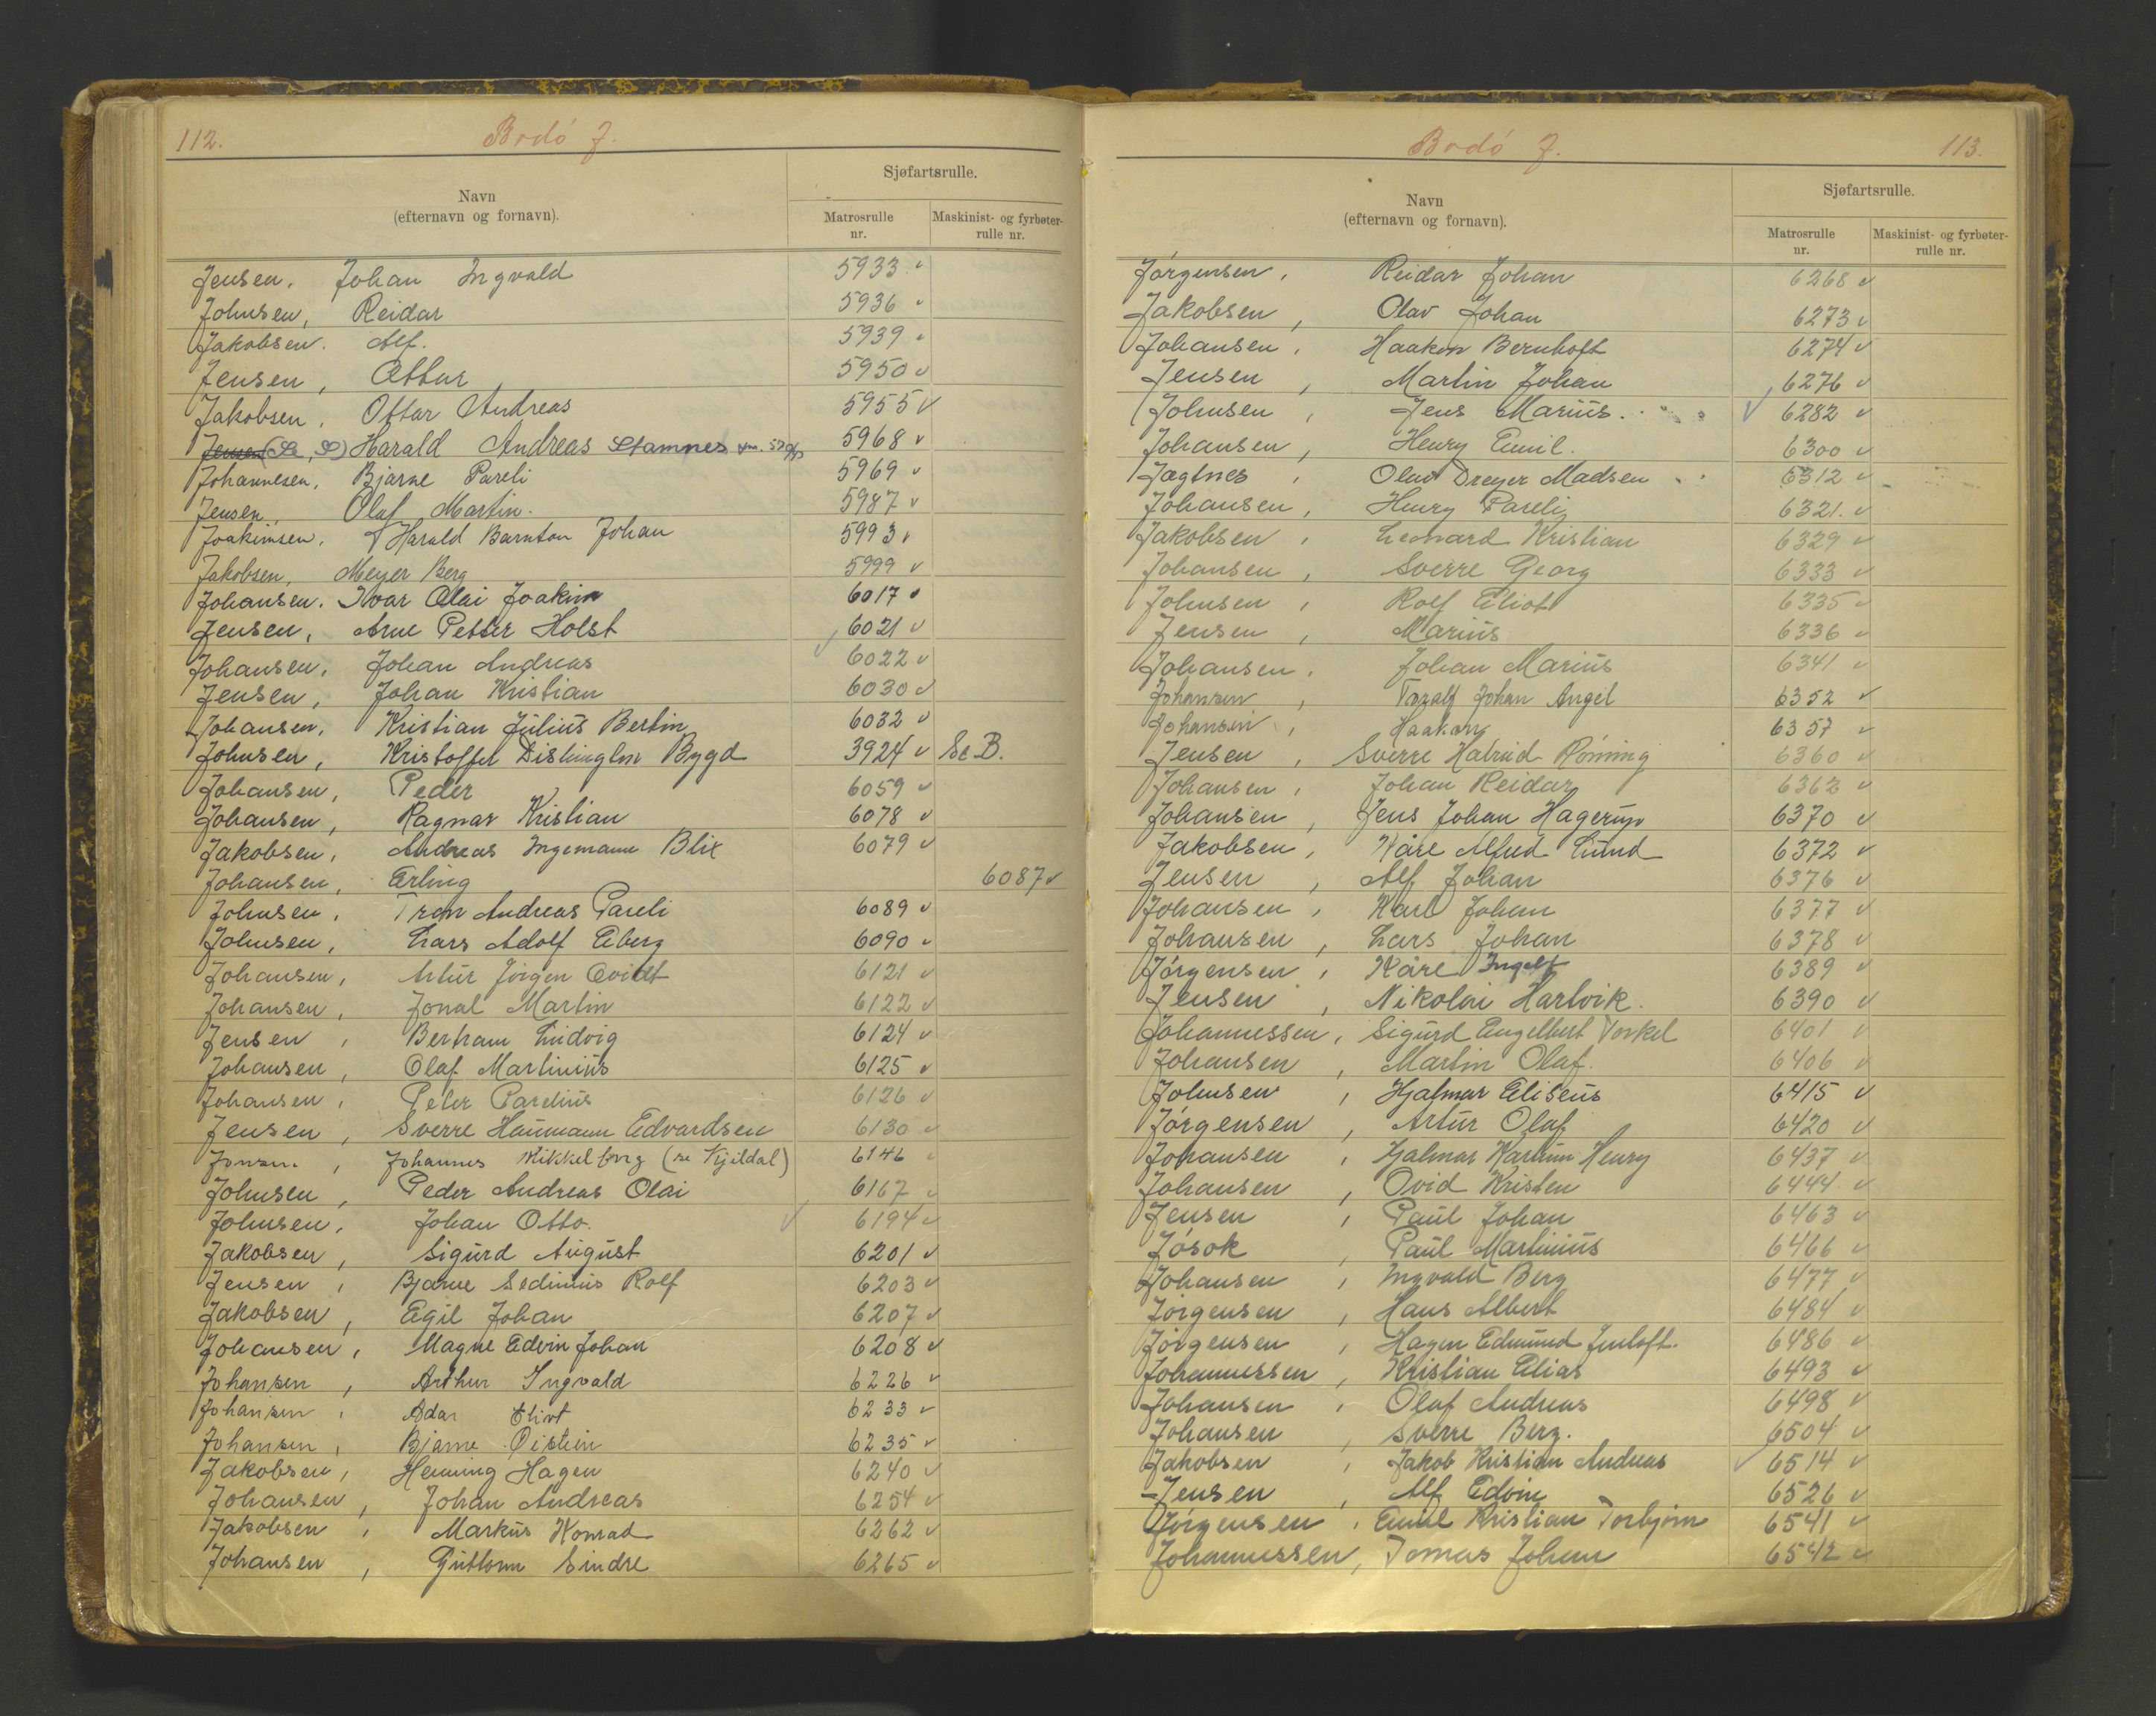 112.
Bodó J.
Navn
(efternavn og fornavn).
Sjøfartsrulle.
Matrosrulle nr.
Maskinist- og fyrbøter-rulle nr.
Jensen, Johan Ingvald 5933 v
Johnsen, Reidar 5936 v
Jakobsen, Alf. 5939 v
Jensen, Ottar 5950 v
Jakobsen, Ottar Andreas 5955 v
Jensen (Se, S) Harald Andreas Stamnes 5968 v
Johannesen, Bjarne Pareli 5969 v
Jensen, Olaf Martin. 5987 v
Joakimsen, Harald Barnton Johan 5993 v
Jakobsen, Meyer Berg 5999 v
Johansen, Ivar Olai Joakim 6017 v
Jensen, Arne Petter Holst 6021 v
Johansen, Johan Andreas v 6022 v
Jensen, Johan Kristian 6030 v
Johansen, Kristian Julius Bertin 6032 v
Johnsen, Kristoffer Dishington Bygd 3924 v Se B.
Johansen, Peder 6059 v
Johansen, Ragnar Kristian 6078 v
Jakobsen, Andreas Ingemann Blix 6079 v
Johansen, Erling 6087 v
Johnsen, Tron Andreas Pareli 6089 v
Johnsen, Lars Adolf Eberg 6090 v
Johansen, Artur Jørgen 6121 v
Johansen, Jonal Martin 6122 v
Jensen, Bertram Ludvig 6124 v
Johansen, Olaf Martinius 6125 v
Johansen, Peter Parelius 6126 v
Jensen, Sverre Haumann Edvardsen 6130 v
Jonsen, Johannes Mikkelborg (se Kjeldal) 6146 v
Johnsen, Peder Andreas Olai 6167 v
Johnsen, Johan Otto. v 6194 v
Jakobsen, Sigurd August 6201 v
Jensen, Bjarne Sedinius Rolf 6203 v
Jakobsen, Egil Johan 6207 v
Johansen, Magne Edvin Johan 6208 v
Johansen, Arthur Ingvald 6226 v
Johansen, Adar Eliot 6233 v
Johansen, Bjarne Øistein 6235 v
Jakobsen, Henning Hagen 6240 v
Johansen, Johan Andreas 6254 v
Jakobsen, Markus Konrad 6262 v
Johansen, Guttorm Sindre 6265 v
Bodó J.
113.
Navn
(efternavn og fornavn).
Sjøfartsrulle.
Matrosrulle nr.
Maskinist- og fyrbøter-rulle nr.
Jørgensen, Reidar Johan 6268 v
Jakobsen, Olav Johan 6273 v
Johansen, Haakon Bernhoft 6274 v
Jensen, Martin Johan 6276 v
Johnsen, Jens Marius. v 6282 v
Johansen, Henry Emil. 6300 v
Jægtnes, Olav Dreyer Madsen 6312 v
Johansen, Henry Pareli 6321. v
Jakobsen, Leonard Kristian 6329 v
Johansen, Sverre Georg 6333 v
Johnsen, Rolf Eliot 6335 v
Jensen, Marius 6336 v
Johansen, Johan Marius 6341 v
Johansen, Toralf Johan Angel 6352 v
Johansen, Haakon 6357 v
Jensen, Sverre Halrud Rønning 6360 v
Johansen, Johan Reidar 6362 v
Johansen, Jens Johan Hagerup 6370 v
Jakobsen, Kåre Alfred Lund 6372 v
Jensen, Alf Johan 6376 v
Johansen, Karl Johan 6377 v
Johansen, Lars Johan 6378 v
Jørgensen, Kåre Ingolf 6389 v
Jensen, Nikolai Hartvik. 6390 v
Johannessen, Sigurd Engelbert Torkel 6401 v
Johansen, Martin Olaf. 6406 v
Johnsen, Hjalmar Eliseus 6415 v
Jørgensen, Artur Olaf 6420 v
Johansen, Hjalmar Henry 6437 v
Johansen, Ovid Kristen 6444 v
Jensen, Paul Johan 6463 v
Jøsok, Paul Martinius 6466 v
Johansen, Ingvald Berg 6477 v
Jørgensen, Hans Albert 6484 v
Jørgensen, Hagen Edmund 6486 v
Johannessen, Kristian Elias 6493 v
Johansen, Olaf Andreas 6498 v
Johansen, Sverre Berg. 6504 v
Jakobsen, Jakob Kristian Andreas v 6514 v
Jensen, Alf Edvin 6526 v
Jørgensen, Emil Kristian Torbjørn 6541 v
Johannessen, Tomas Johan 6542 v